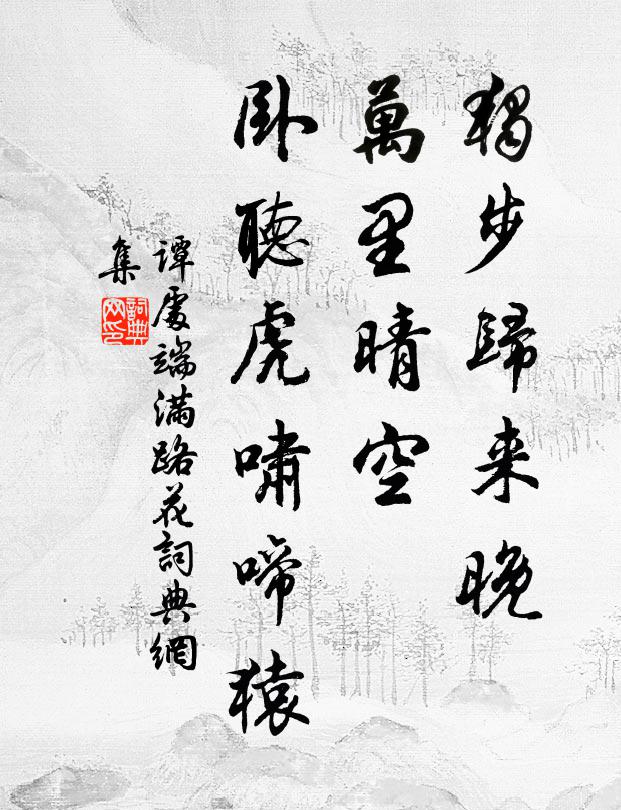 獨步歸来晚
萬里晴空
卧聽虎嘯啼猿
谭處端满路花詞典網
集
詞典
网印